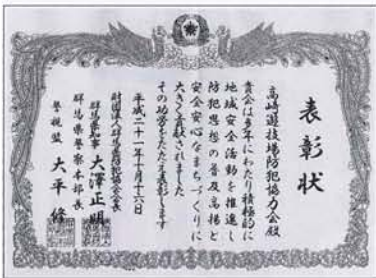 表彰状
高崎遊技場防犯協力会殿
貴会は多年にわたり積極的に
地域安全活動を推進し
防犯思想の普及高揚と
安全安心なまちづくりに
大きく貢献されました
その功労をたたえ表彰します
平成二十一年十月十六日
財団法人群馬県防犯協会会長
群馬県知事 大澤正明
群馬県警察本部長
警視監 大平修